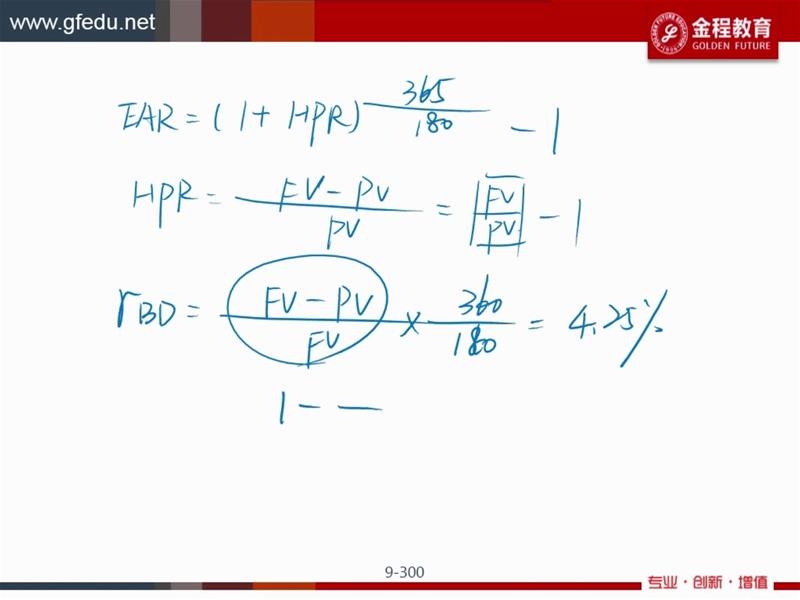 www.gfedu.net
金程教育
GOLDEN FUTURE
EAR = (1 + HPR)^(365/180) - 1
HPR = (FV - PV)/PV = |FV/PV| - 1
rBD = (FV - PV)/FV × 360/180 = 4.25%
1 - —
9-300
专业·创新·增值